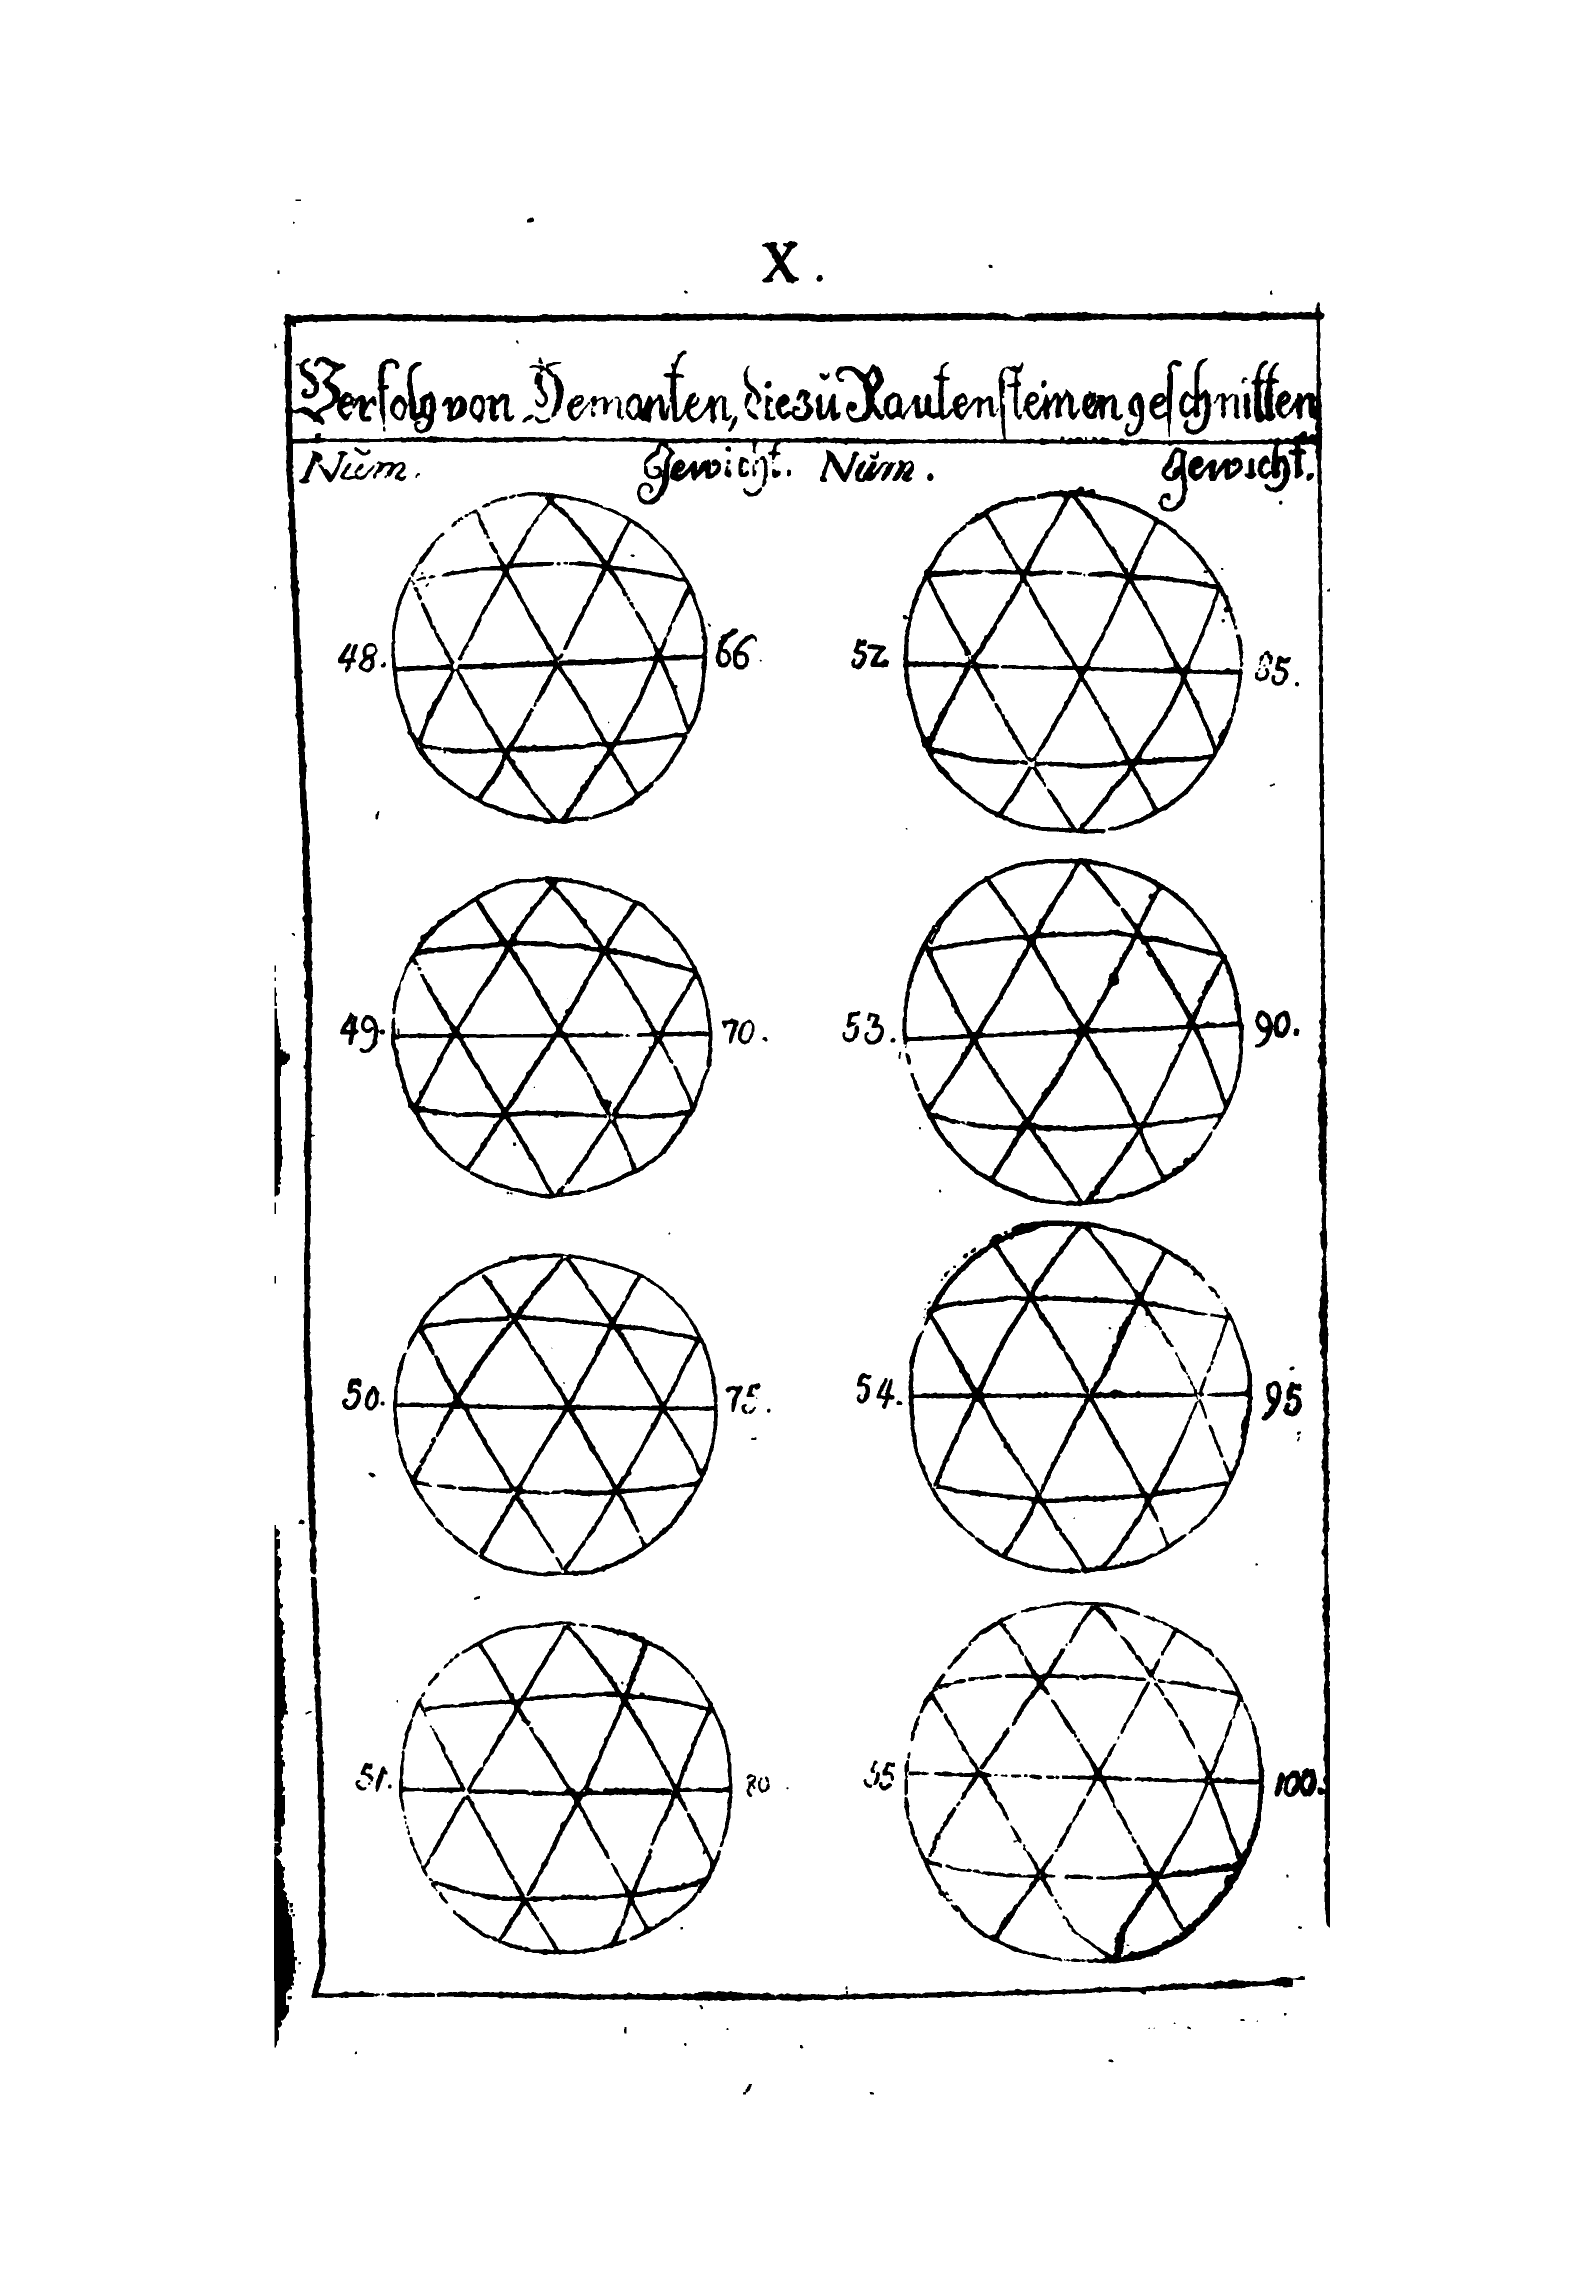 X.
Verfolg von Demanten, die zŭ Rautensteinen geschnitten
Nŭm. Gewicht. Nŭm. Gewicht.
48. 66
52 85.
49. 70.
53. 90.
50. 75.
54. 95
51. 80
55 100.